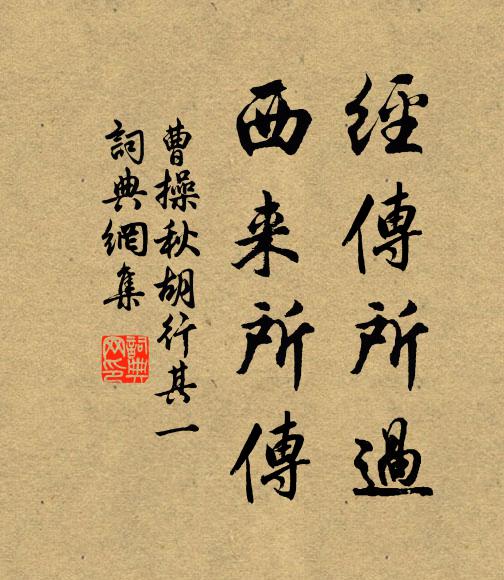 經傳所過
西来所傳
曹操秋胡行其一
詞典網集
詞典
网印